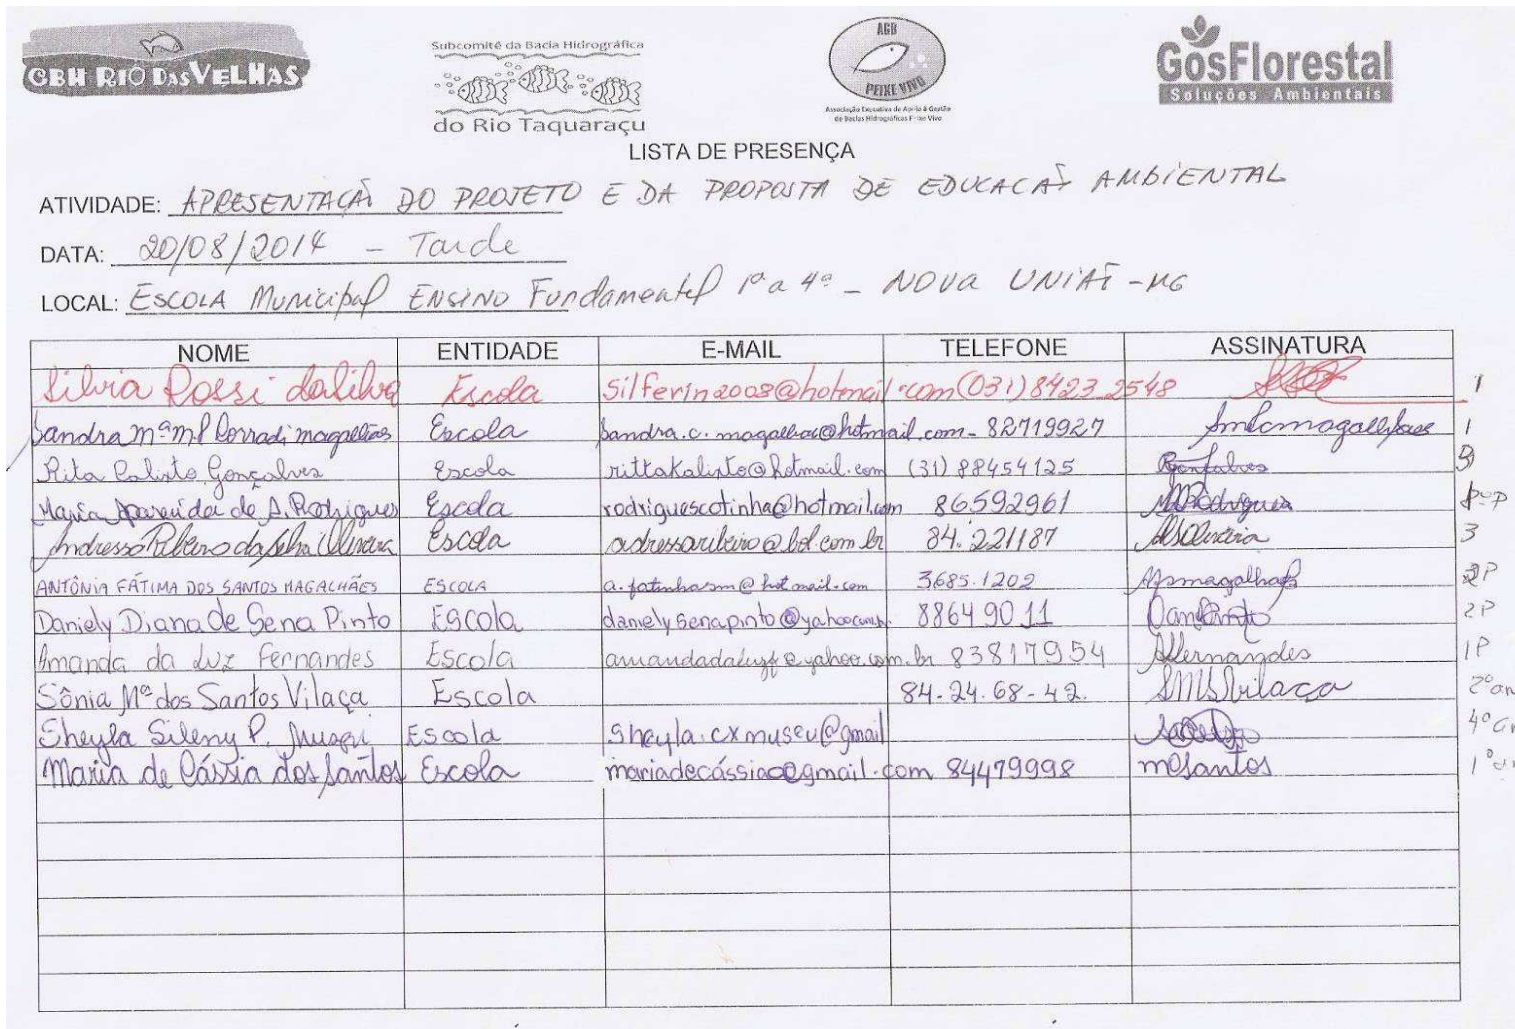 CBH RIO DAS VELHAS
Subcomitê da Bacia Hidrográfica
do Rio Taquaraçu
AGB
PEIXE VIVO
Associação Executiva de Apoio à Gestão
de Bacias Hidrográficas Peixe Vivo
GosFlorestal
Soluções Ambientais
LISTA DE PRESENÇA
ATIVIDADE: APRESENTAÇÃO DO PROJETO E DA PROPOSTA DE EDUCACAÕ AMBIENTAL
DATA: 20/08/2014 - Tarde
LOCAL: ESCOLA Municipal ENSINO Fundamental 1ª a 4ª - NOVA UNIAÕ - MG
NOME ENTIDADE E-MAIL TELEFONE ASSINATURA
Silvia Rossi da Silva Escola silferin2008@hotmail.com (031) 8423 2548 1
Sandra Mª M.P Corradi magalhães Escola sandra.c.magalhae@hotmail.com - 82719927 Smlcmagalhães 1
Rita Calixto Gonçalves Escola rittakalixto@hotmail.com (31) 88454125 Gonçalves 3
Maria Aparecida de A. Rodrigues Escola rodriguescotinha@hotmail.com 86592961 MRodrigues
Andressa Ribeiro da Silva Oliveira Escola adressaribeiro@bol.com.br 84.221187 ASOliveira 3
ANTÔNIA FÁTIMA DOS SANTOS MAGALHÃES ESCOLA a.fatinhasm@hotmail.com 3685.1202 Afsmagalhães 2P
Daniely Diana de Sena Pinto Escola danielysenapinto@yahoo.com. 8864 9011 2P
Amanda da Luz Fernandes Escola amandadaluzf@yahoo.com.br 83817954 Afernandes 1P
Sônia Mª dos Santos Vilaça Escola 84-24.68-42. SMSVilaça 2º an
Sheyla Sileny P. Escola Sheyla.cxmuseu@gmail 4º
Maria de Cássia dos Santos Escola mariadecássiac@gmail.com 84479998 mcsantos 1º